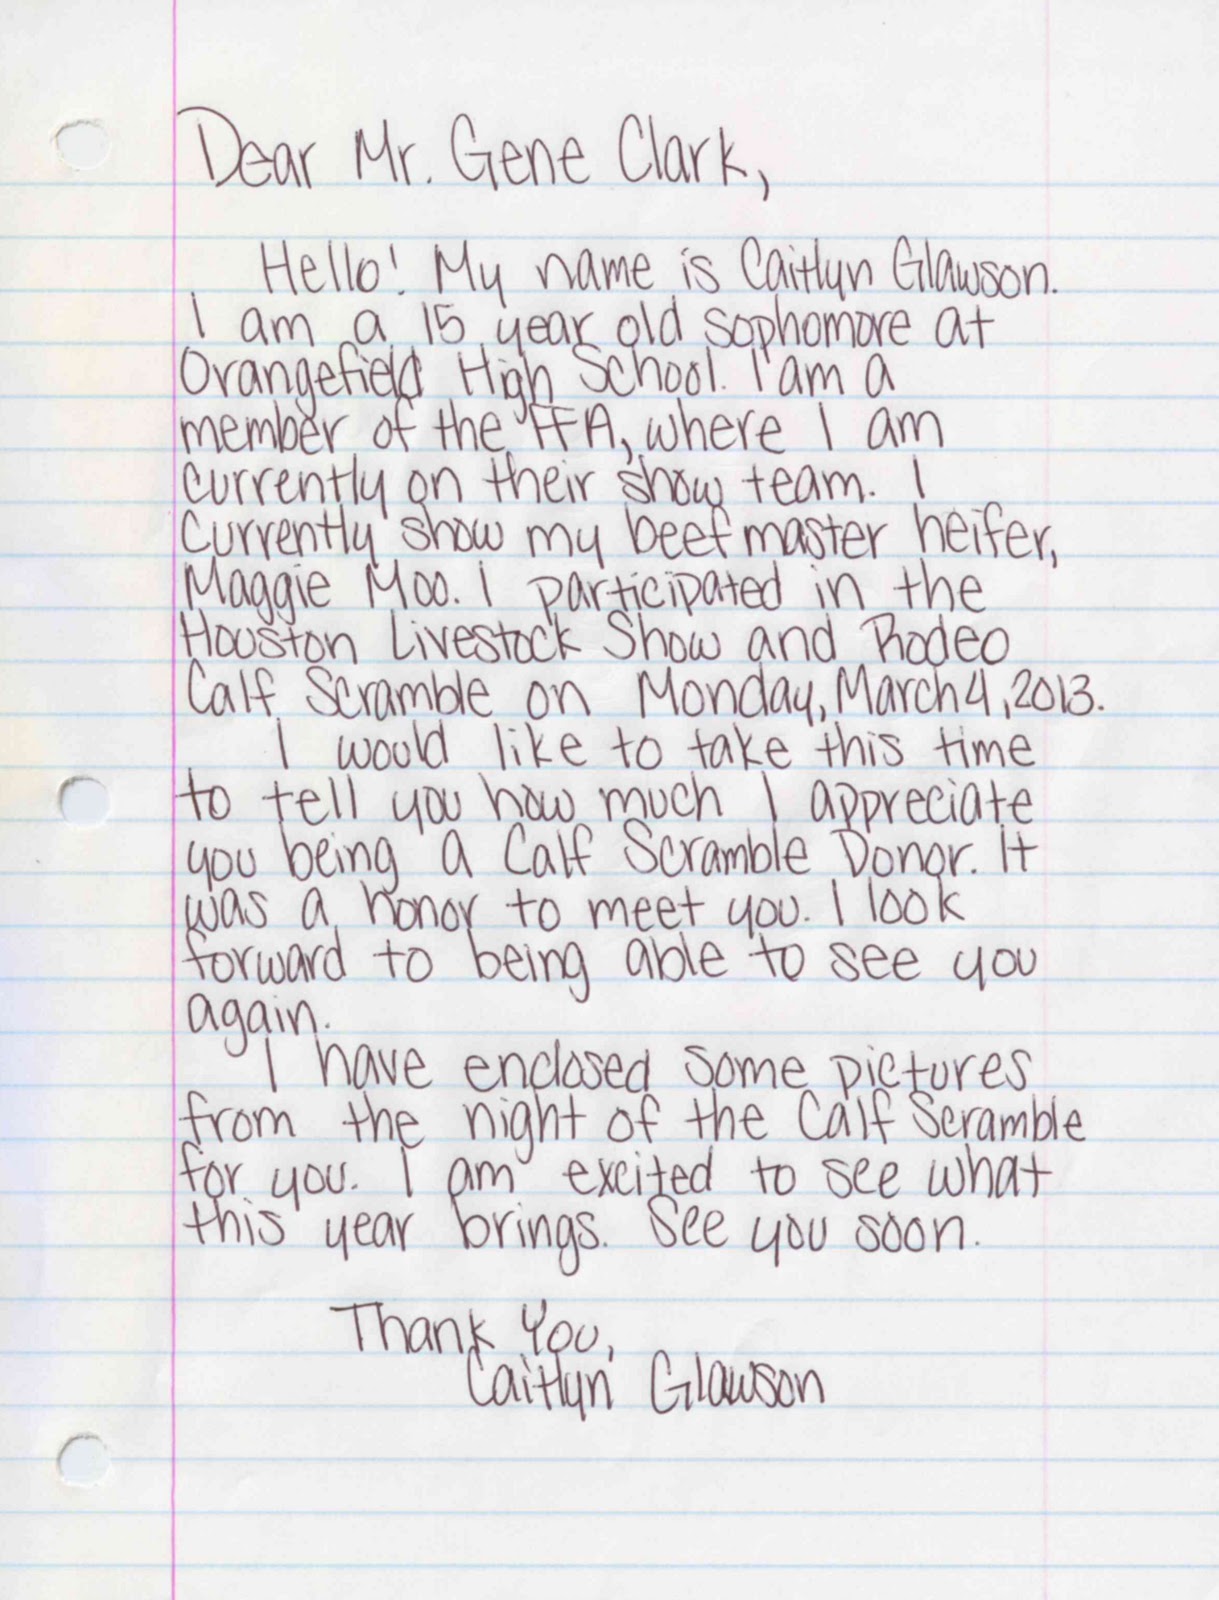 Dear Mr. Gene Clark,
Hello! My name is Caitlyn Glawson.
I am a 15 year old sophomore at
Orangefield High School. I am a
member of the FFA, where I am
currently on their show team. I
currently show my beefmaster heifer,
Maggie Moo. I participated in the
Houston Livestock Show and Rodeo
Calf Scramble on Monday, March 4, 2013.
I would like to take this time
to tell you how much I appreciate
you being a Calf Scramble Donor. It
was a honor to meet you. I look
forward to being able to see you
again.
I have enclosed some pictures
from the night of the Calf Scramble
for you. I am excited to see what
this year brings. See you soon.
Thank You,
Caitlyn Glawson